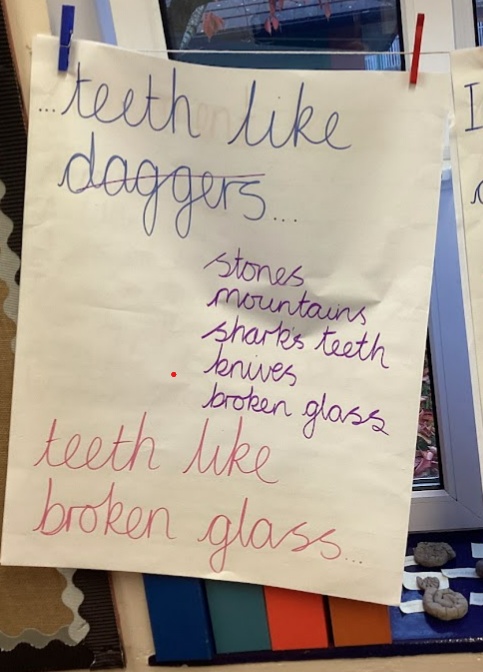 ...teeth like
daggers...
stones
mountains
shark's teeth
knives
broken glass
teeth like
broken glass...
I